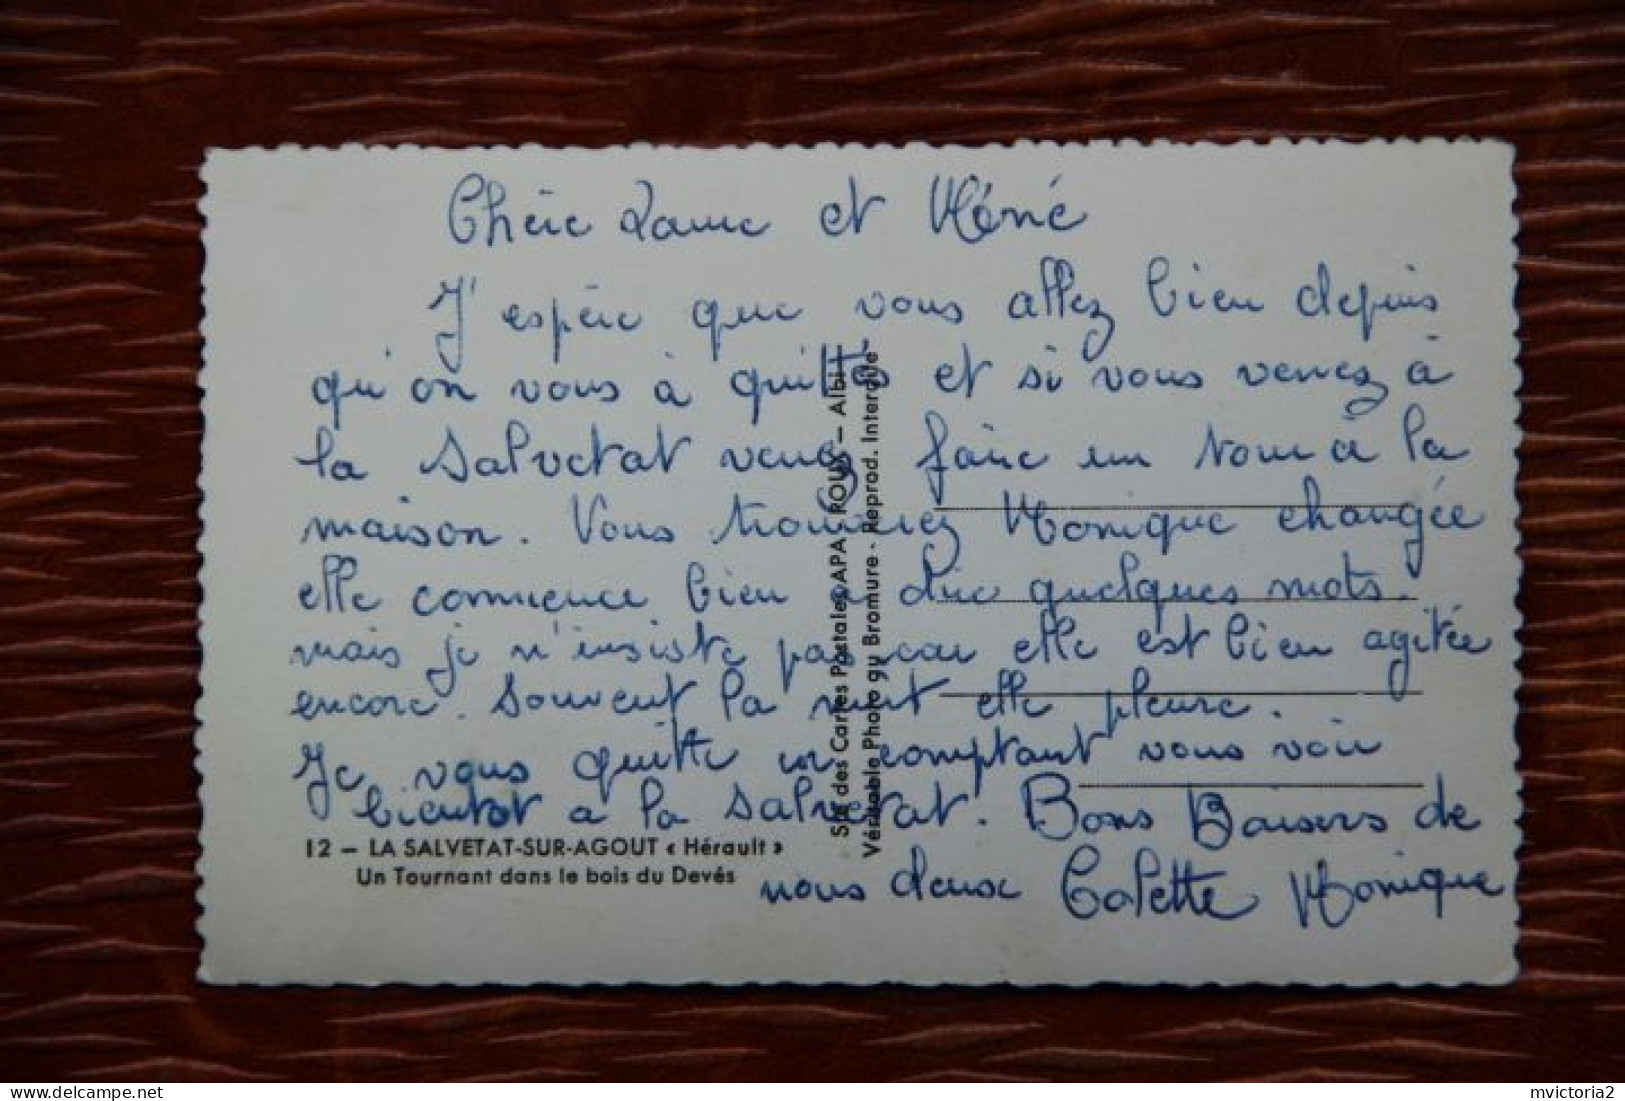 Chère et
J'espère que vous allez bien depuis
qu'on vous à quittés et si vous venez à
la Salvetat venez faire un tour à la
maison. Vous trouverez Monique changée
elle commence bien a dire quelques mots.
mais je n'insiste pas car elle est bien agitée
encore. Souvent la nuit elle pleure.
Je vous quitte en comptant vous voir
bientot a la Salvetat. Bons Baisers de
nous deux Colette Monique
12 – LA SALVETAT-SUR-AGOUT « Hérault »
Un Tournant dans le bois du Devés
des Cartes Postales APA-POUX – Albi
Véritable Photo au Bromure - Reprod. Interdite
mvictoria2